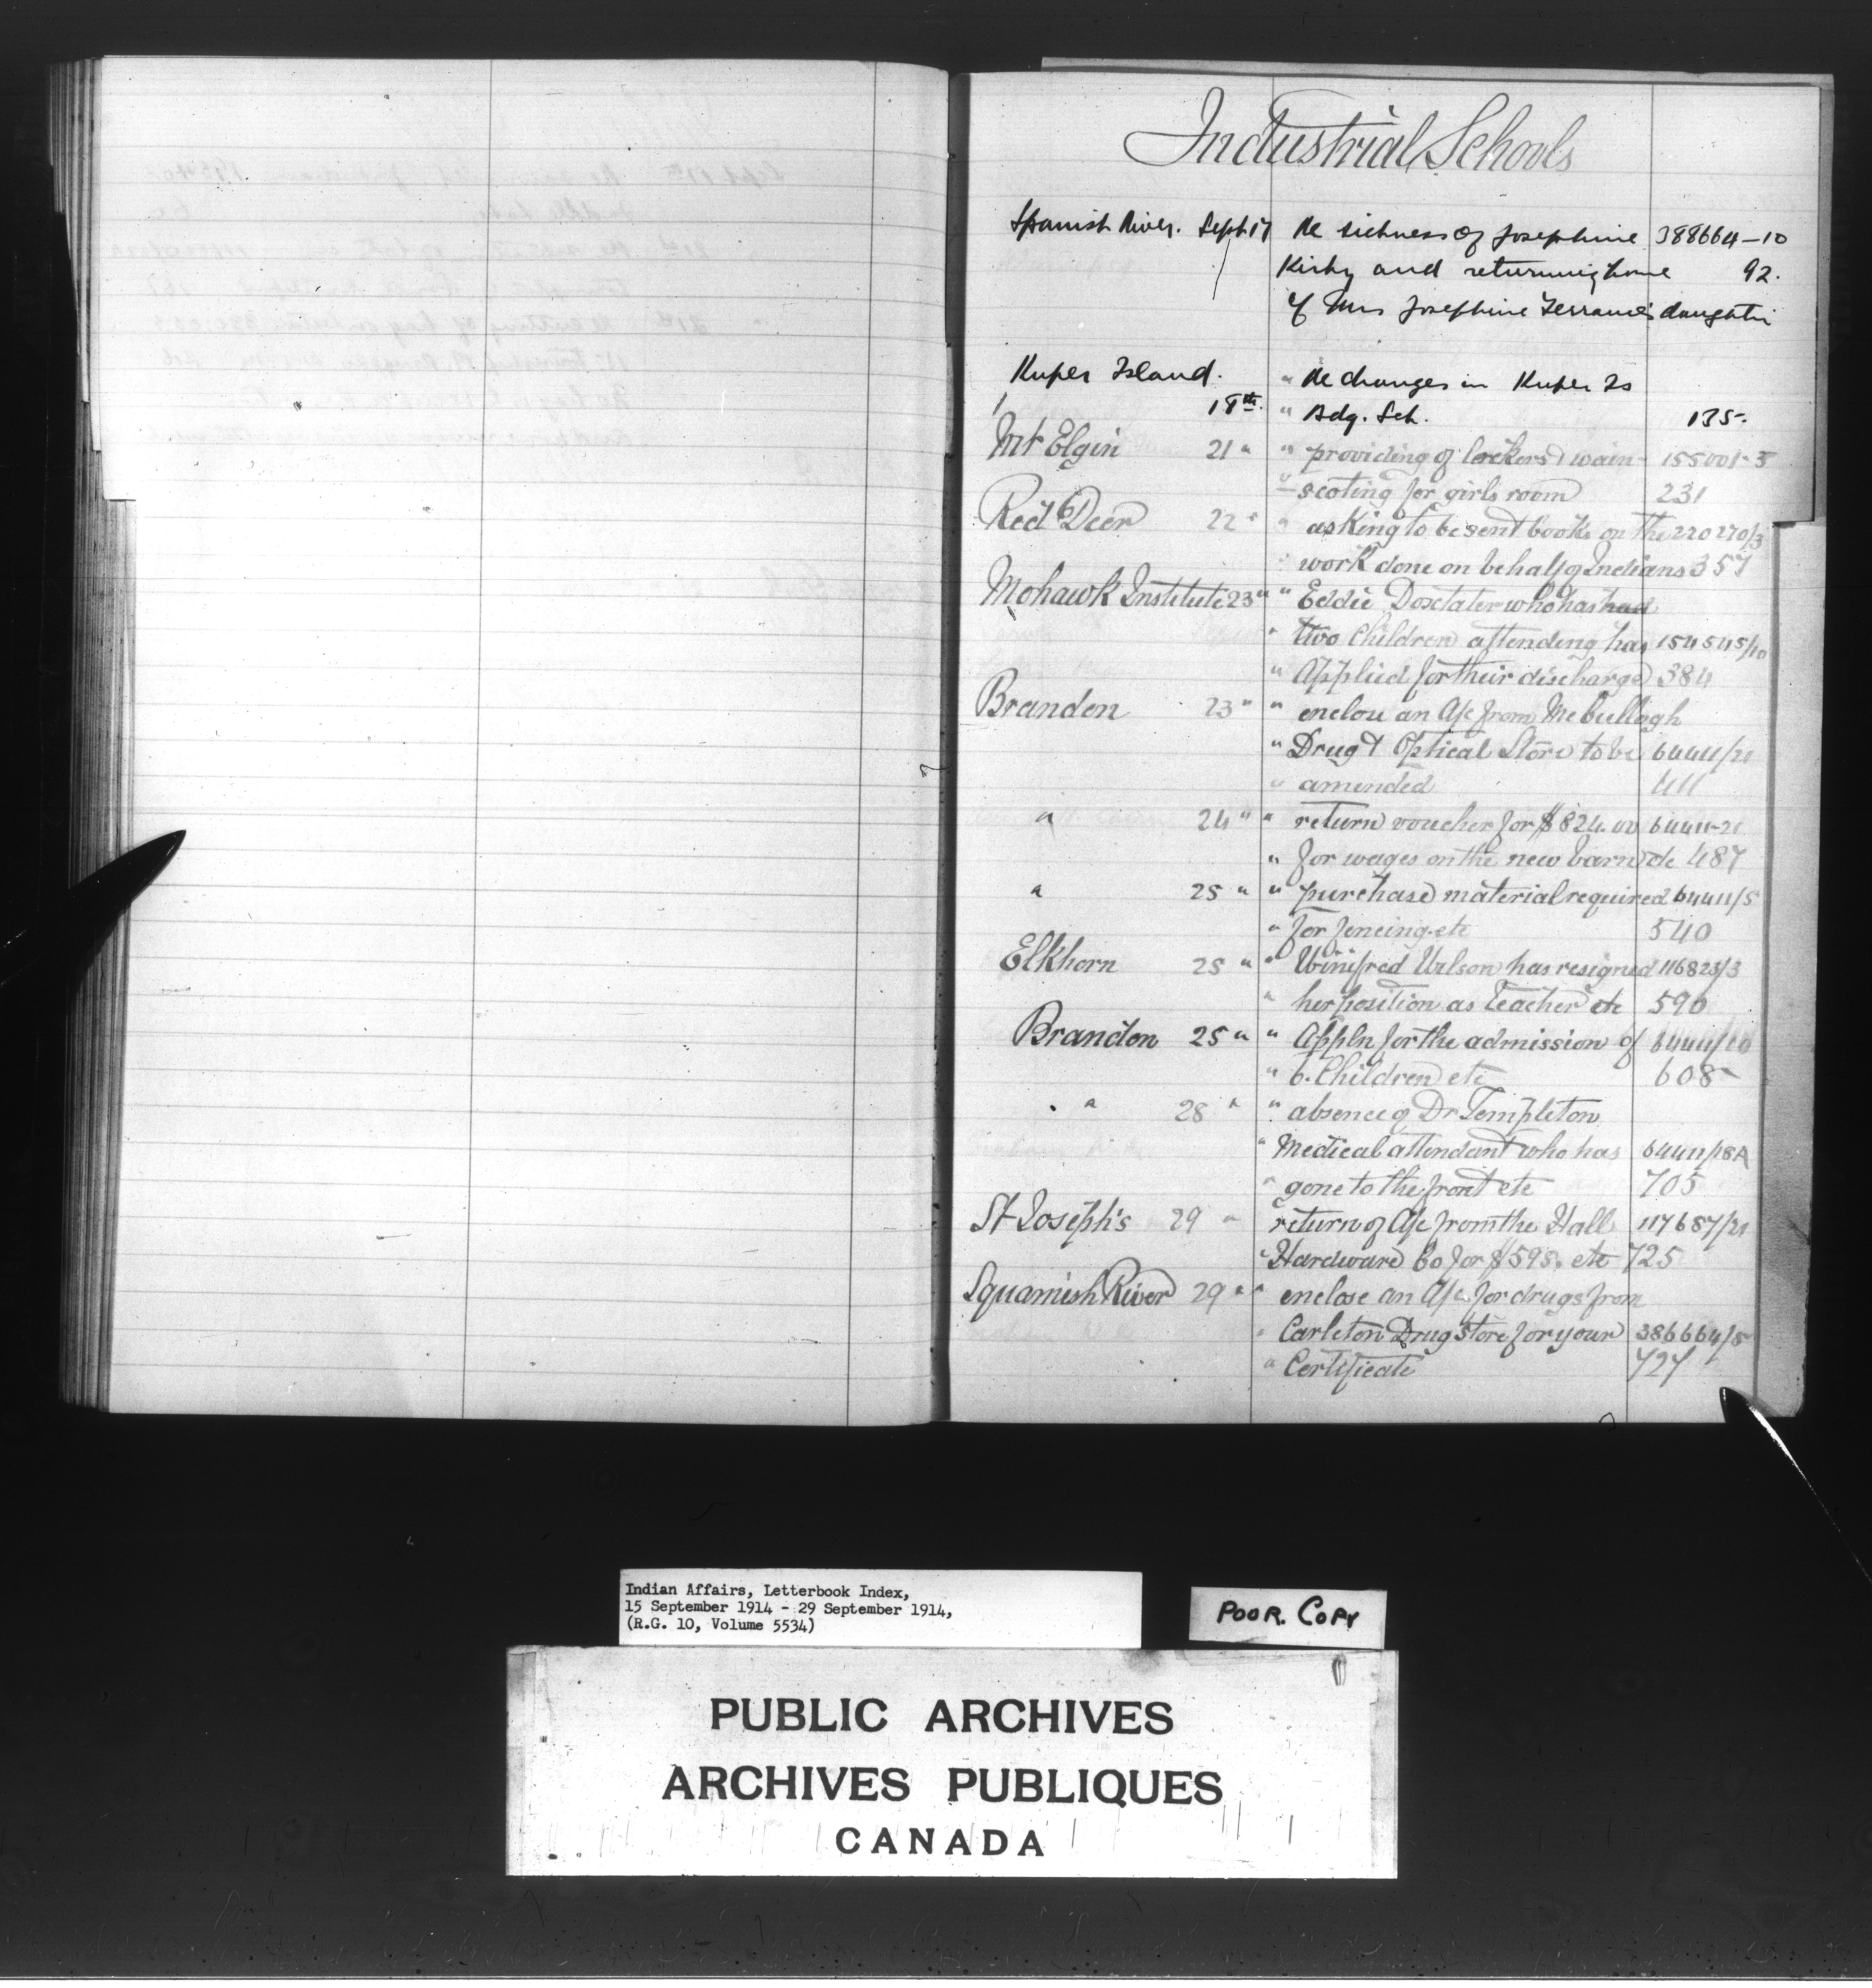 Industrial Schools
Spanish River. Sept 17 Re sickness of Josephine 388664-10
Kirby and returning home 92.
of Mrs Josephine daughter
Kuper Island. " Re changes in Kuper Is
18th. " Bdg. Sch. 135-
Mt Elgin 21 " " providing of lockers & wain- 155001-5
scoting for girls room 231
Red Deer 22 " " asking to be sent books on the 220270/3
" work done on behalf of Indians 357
Mohawk Institute 23 " " Eddie Doxtater who has had
" two Children attending has 154545/10
" Applied for their discharge 384
Brandon 23 " " enclose an A/c from McCullogh
" Drug & Optical Store to be 64411/21
" amended 411
" 24 " " return voucher for $824.00 64411-21
" for wages on the new barn etc 487
" 25 " " purchase material required 64411/5
" for fencing etc 540
Elkhorn 25 " " Winifred Wilson has resigned 116825/3
" her position as teacher etc 590
Brandon 25 " " Appln for the admission of 64411/10
" 6. Children etc 608
" 28 " " absence of Dr Templeton
" Medical attendant who has 64411/18A
" gone to the front etc 705
St Joseph's 29 " return of A/c from the Hall 117687/21
" Hardware Co for $595. etc 725
Squamish River 29 " " enclose an A/c for drugs from
" Carleton Drug Store for your 386664/5
" Certificate 727
Indian Affairs, Letterbook Index,
15 September 1914 - 29 September 1914,
(R.G. 10, Volume 5534)
POOR. COPY
PUBLIC ARCHIVES
ARCHIVES PUBLIQUES
CANADA